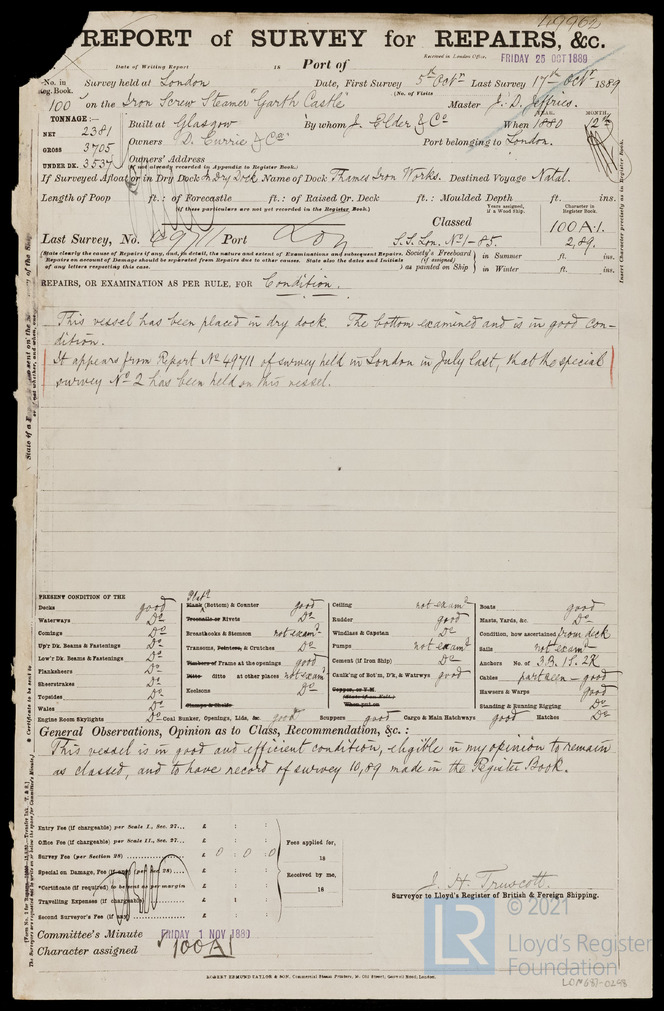 49962
REPORT of SURVEY for REPAIRS, &c.
Date of Writing Report 18 Port of Received in London Office, FRIDAY 25 OCT 1889
No. in Reg. Book. Survey held at London Date, First Survey 5th Octr Last Survey 17th Octr 1889
(No. of Visits
100 on the Iron Screw Steamer "Garth Castle" Master J. D. Jeffries.
TONNAGE:— YEAR. MONTH.
NET 2381 Built at Glasgow By whom J. Elder & Co When 1880 12th
GROSS 3705 Owners D. Currie & Co. Port belonging to London.
UNDER DK. 3537 Owners' Address
(If not already recorded in Appendix to Register Book.)
If Surveyed Afloat or in Dry Dock In Dry Dock Name of Dock Thames Iron Works. Destined Voyage Natal.
Length of Poop ft.: of Forecastle ft.: of Raised Qr. Deck ft.: Moulded Depth ft. ins.
(If these particulars are not yet recorded in the Register Book.) Years assigned, if a Wood Ship. Character in Register Book.
Classed 100A.1.
Last Survey, No. 49711 Port Lon S.S. Lon. No 1-85. 2,89.
(State clearly the cause of Repairs if any, and, in detail, the nature and extent of Examinations and subsequent Repairs.
Repairs on account of Damage should be separated from Repairs due to other causes. State also the dates and initials
of any letters respecting this case.
Society's Freeboard (if assigned) as painted on Ship in Summer ft. ins.
in Winter ft. ins.
Insert Character precisely as in Register Book.
REPAIRS, OR EXAMINATION AS PER RULE, FOR Condition.
This vessel has been placed in dry dock. The bottom examined and is in good con-
dition.
It appears from Report No 49711 of survey held in London in July last, that the special
survey No 2 has been held on this vessel.
PRESENT CONDITION OF THE
Decks good
Waterways Do
Comings Do
Up'r Dk. Beams & Fastenings Do
Low'r Dk. Beams & Fastenings Do
Planksheers Do
Sheerstrakes Do
Topsides Do
Wales Do
Engine Room Skylights Do
Plats
Plank (Bottom) & Counter good
Treenails or Rivets Do
Breasthooks & Stemson not examd
Transoms, Pointers, & Crutches Do
Timbers or Frame at the openings good
Ditto ditto at other places not examd
Keelsons Do
Stamps & Shelfs
Coal Bunker, Openings, Lids, &c. good
Ceiling not examd
Rudder good
Windlass & Capstan Do
Pumps not examd
Cement (if Iron Ship) Do
Caulk'ng of Bot'm, D'k, & Watrwys good
Copper, or Y.M.
(State if on Felt.)
When put on
Scuppers good Cargo & Main Hatchways good Hatches Do
Boats good
Masts, Yards, &c. Do
Condition, how ascertained from deck
Sails not examd
Anchors No. of 3B. 1S. 2K
Cables part seen - good
Hawsers & Warps good
Standing & Running Rigging Do
General Observations, Opinion as to Class, Recommendation, &c.:
This vessel is in good and efficient condition, eligible in my opinion to remain
as classed, and to have record of survey 10,89 made in the Register Book.
Entry Fee (if chargeable) per Scale I., Sec. 27... £ : :
Office Fee (if chargeable) per Scale II., Sec. 27... £ : :
Survey Fee (per Section 28) £ 0 : 0 : 0
Special on Damage, Fee (if any) (per Sec. 28) £ : :
*Certificate (if required) to be sent as per margin £ : :
Travelling Expenses (if chargeable) £ : :
Second Surveyor's Fee (if any) £ : :
Fees applied for,
18
Received by me,
18
J. H. Truscott.
Surveyor to Lloyd's Register of British & Foreign Shipping.
Committee's Minute FRIDAY 1 NOV 1889
Character assigned 100A1
ROBERT EDMUND TAYLOR & SON, Commercial Steam Printers, 19, Old Street, Goswell Road, London.
LR
© 2021
Lloyd's Register
Foundation
LON687-0248